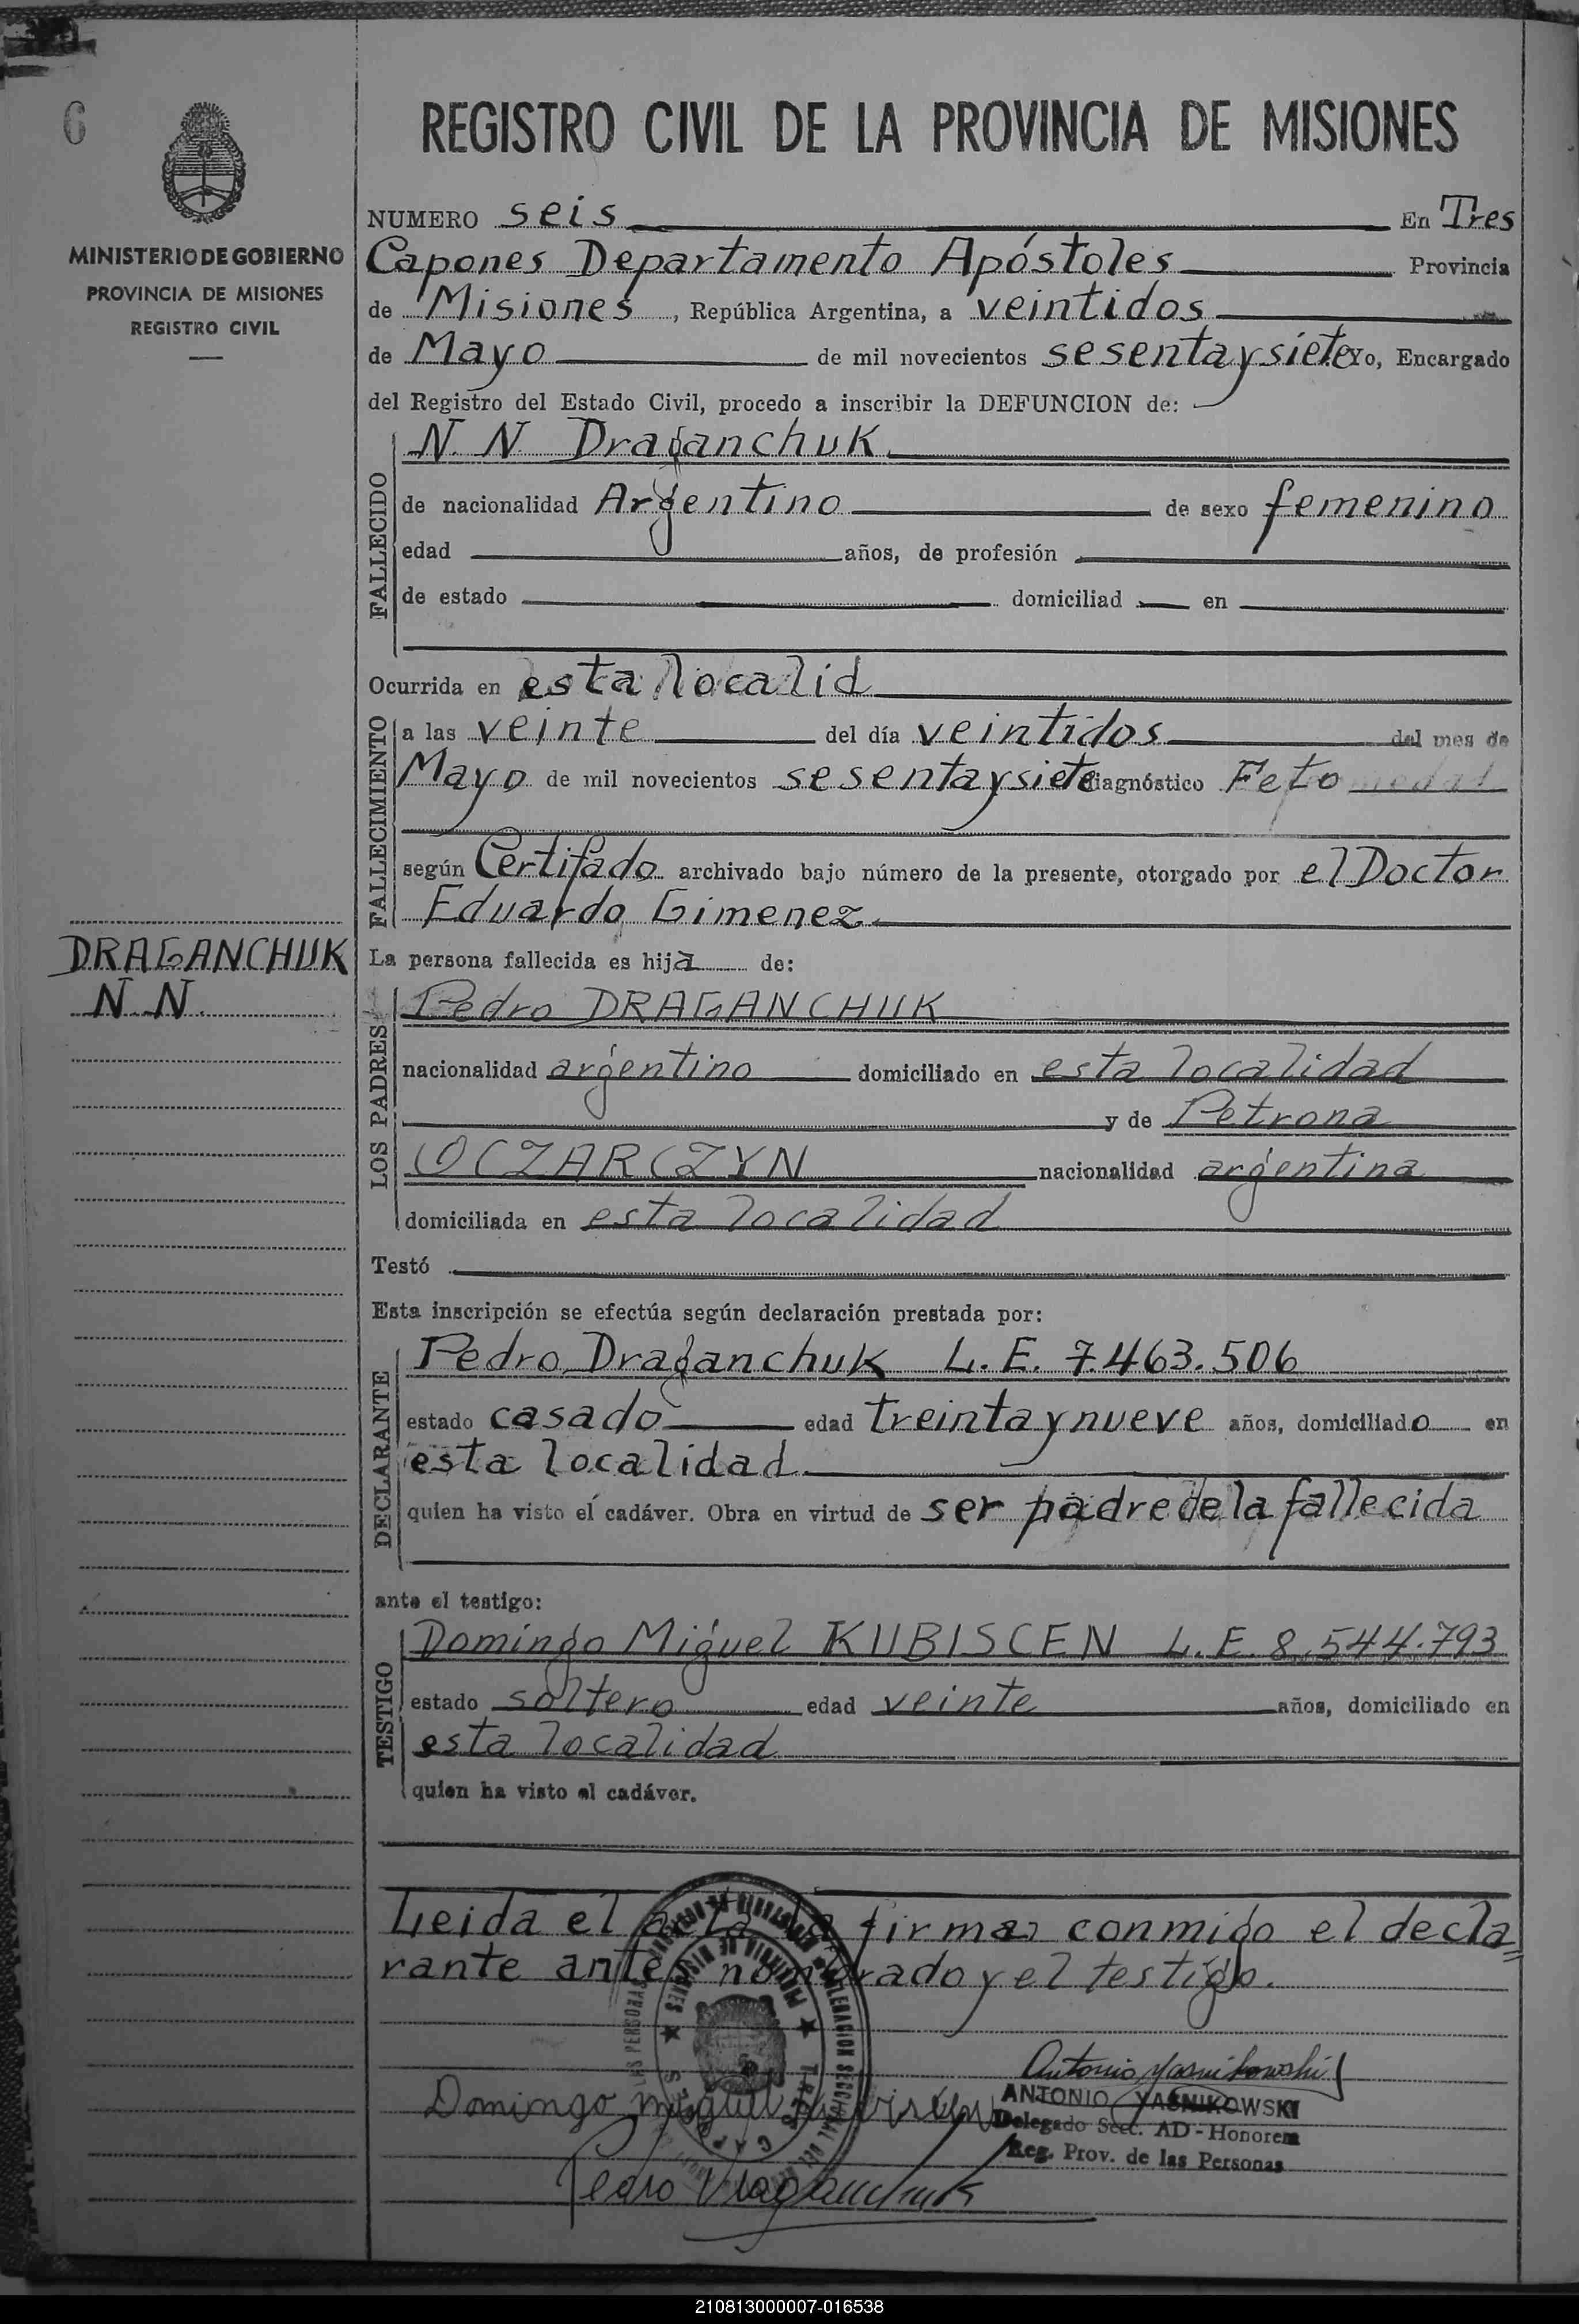 6
MINISTERIO DE GOBIERNO
PROVINCIA DE MISIONES
REGISTRO CIVIL
DRAGANCHUK
N.N.
REGISTRO CIVIL DE LA PROVINCIA DE MISIONES
NUMERO seis En Tres
Capones Departamento Apóstoles Provincia
de Misiones, República Argentina, a veintidos
de Mayo de mil novecientos sesentaysiete Yo, Encargado
del Registro del Estado Civil, procedo a inscribir la DEFUNCION de:
FALLECIDO
N. N. Draganchuk
de nacionalidad Argentino de sexo femenino
edad años, de profesión
de estado domiciliad en
Ocurrida en esta localid
FALLECIMIENTO
a las veinte del día veintidos del mes de
Mayo de mil novecientos sesentaysiete diagnóstico Feto
según Certifado archivado bajo número de la presente, otorgado por el Doctor
Eduardo Gimenez
La persona fallecida es hija de:
LOS PADRES
Pedro DRAGANCHUK
nacionalidad argentino domiciliado en esta localidad
y de Petrona
OCZARCZYN nacionalidad argentina
domiciliada en esta localidad
Testó
Esta inscripción se efectúa según declaración prestada por:
DECLARANTE
Pedro Draganchuk L.E. 7.463.506
estado casado edad treintaynueve años, domiciliado en
esta localidad
quien ha visto el cadáver. Obra en virtud de ser padre de la fallecida
ante el testigo:
TESTIGO
Domingo Miguel KUBISCEN L.E. 8.544.793
estado soltero edad veinte años, domiciliado en
esta localidad
quien ha visto el cadáver.
Leida el acta la firman conmigo el decla
rante antes nombrado y el testigo.
Antonio Yasnikowski
ANTONIO YASNIKOWSKI
Delegado Secc. AD-Honorem
Reg. Prov. de las Personas
Domingo Miguel
Pedro Draganchuk
210813000007-016538